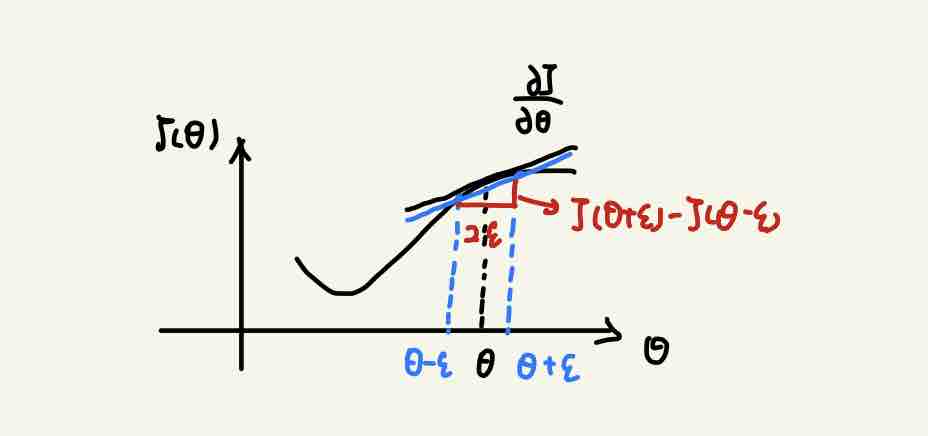 ∂J
∂θ
J(θ)
J(θ+ε)-J(θ-ε)
2ε
θ-ε θ θ+ε
θ